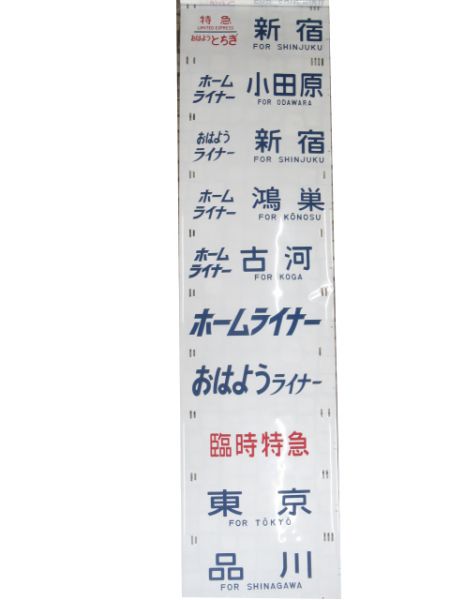 特急
LIMITED EXPRESS
おはようとちぎ
新宿
FOR SHINJUKU
ホーム
ライナー
小田原
FOR ODAWARA
おはよう
ライナー
新宿
FOR SHINJUKU
ホーム
ライナー
鴻巣
FOR KŌNOSU
ホーム
ライナー
古河
FOR KOGA
ホームライナー
おはようライナー
臨時特急
東京
FOR TŌKYŌ
品川
FOR SHINAGAWA